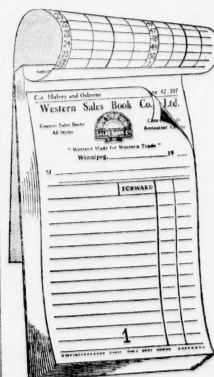 Cor. Mulvey and Osborne
Phone 42 207
Western Sales Book Co. Ltd.
Counter Sales Books
All Styles
Restaurant
"Western Made for Western Trade"
Winnipeg, 19
M
FORWARD
1